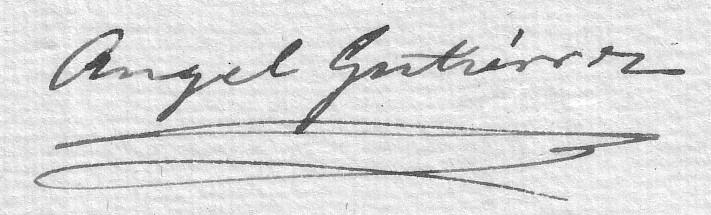 Angel Gutiérrez